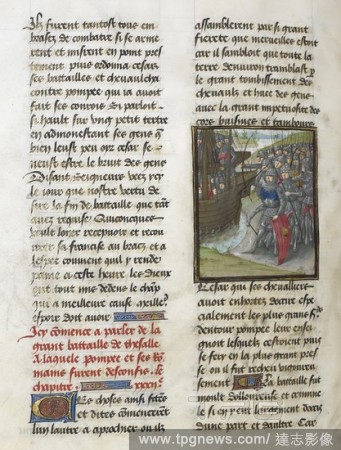 Ilz furent tantost tous em
brasez de combatre si se arme
rent et misrent en point pres
tement puis ordonna cesar
ses battailles et chevaulcha
contre pompee qui ia avoit
fait ses conrois Si parloit
si hault sur ung petit tertre
en admonestant ses gens que
bien leust peu oir cesar se
neust este le bruit des gens
Disant Seigneurs veez cy
le iour que nostre vertu de
sire la fin de battaille que tant
avez requise Quiconcques
veult loyer recepvoir et recou
vrer sa francise au bracz et a
lespee convient quil y rende
paine car a ceste heure les dieux
ont tout mis dedens le champ
qui a meilleure cause meilleur
espoir doit avoir
Icy comence a parler de la
grant battaille de thesalle
a laquele pompee et ses Ro
mains furent desconfis. le
chapitre
Ces choses ainsi faites
et dites comencerent
lun lautre a aprochier ou ilz
assamblerent par si grant
fierete que merveilles estoit
car il sambloit que toute la
terre denviron tramblast par
le grant tombissement des
chevaulx et huee des gens
avec la grant impetuosite des
cors buisines et tambours
Cesar qui ses chevalliers
avoit enhortez decire espe
cialement les plus grans
dentour pompee leur ensei
gnoit lesquels cestoient puis
se fery en la plus grant pres
se ou il fut recheu vigoureu
sement La battaille fut
moult dolloureuse et cruelle
dune part et daultre Car
www.tpgnews.com / 達志影像